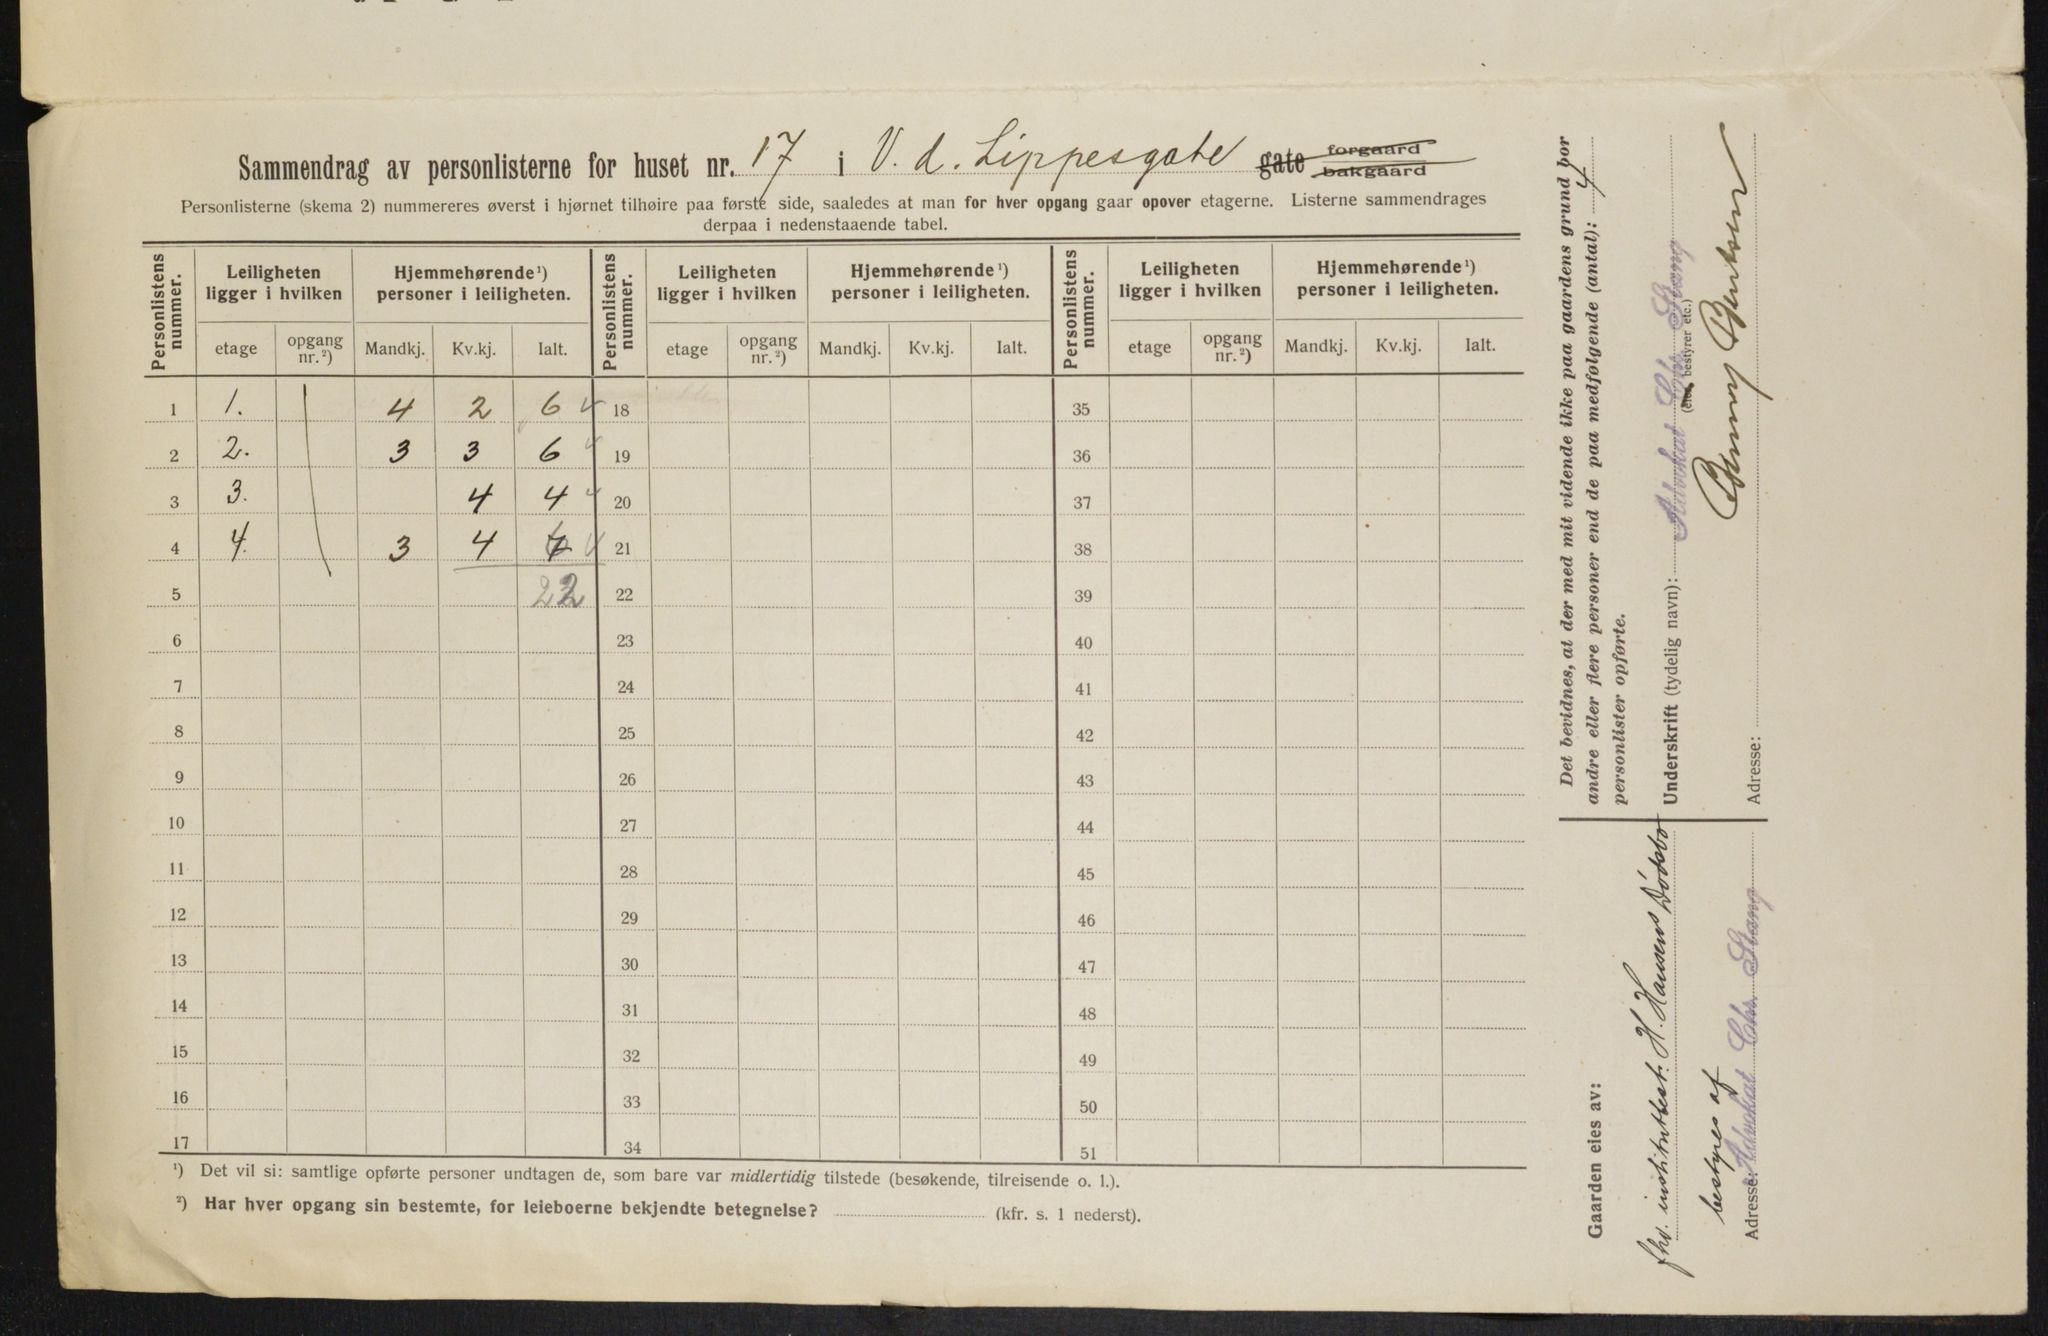 Sammendrag av personlisterne for huset nr. 17 i V. d. Lippesgate gate forgaard bakgaard
Personlisterne (skema 2) nummereres øverst i hjørnet tilhøire paa første side, saaledes at man for hver opgang gaar opover etagerne. Listerne sammendrages
derpaa i nedenstaaende tabel.
Personlistens nummer. Leiligheten ligger i hvilken Hjemmehørende ¹) personer i leiligheten. Personlistens nummer. Leiligheten ligger i hvilken Hjemmehørende ¹) personer i leiligheten. Personlistens nummer. Leiligheten ligger i hvilken Hjemmehørende ¹) personer i leiligheten.
etage opgang nr. ²) Mandkj. Kv.kj. Ialt. etage opgang nr. ²) Mandkj. Kv.kj. Ialt. etage opgang nr. ²) Mandkj. Kv.kj. Ialt.
1 1. 4 2 6 18 35
2 2. 3 3 6 19 36
3 3. 4 4 20 37
4 4. 3 4 21 38
5 22 22 39
6 23 40
7 24 41
8 25 42
9 26 43
10 27 44
11 28 45
12 29 46
13 30 47
14 31 48
15 32 49
16 33 50
17 34 51
¹) Det vil si: samtlige opførte personer undtagen de, som bare var midlertidig tilstede (besøkende, tilreisende o. l.).
²) Har hver opgang sin bestemte, for leieboerne bekjendte betegnelse? (kfr. s. 1 nederst).
Det bevidnes, at der med mit vidende ikke paa gaardens grund bor
andre eller flere personer end de paa medfølgende (antal): 4
personlister opførte.
Underskrift (tydelig navn): Advokat Chr. Strang
(eier, bestyrer etc.)
Adresse:
Gaarden eies av:
institutet H. Hansens
bestyres af
Adresse: Advokat Chr. Strang